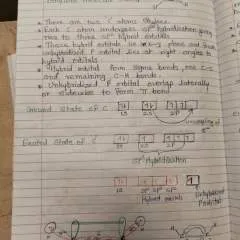 • There are two C atoms
• Each C atom undergoes sp² hybridization giving
rise to three sp² hybrid orbitals
• These hybrid orbitals lie in x-y plane and
unhybridized P orbital lies at right angles to
hybrid orbitals
• Hybrid orbital form sigma bonds,
and remaining C-H bonds.
• Unhybridized P orbital overlap laterally
or sidewise to form π bond
Ground State of C
1s 2s 2p
uncoupling of
e⁻
Excited State of C
1s 2s 2p
sp² Hybridization
1s sp² sp² sp²
Hybrid
Unhybridized